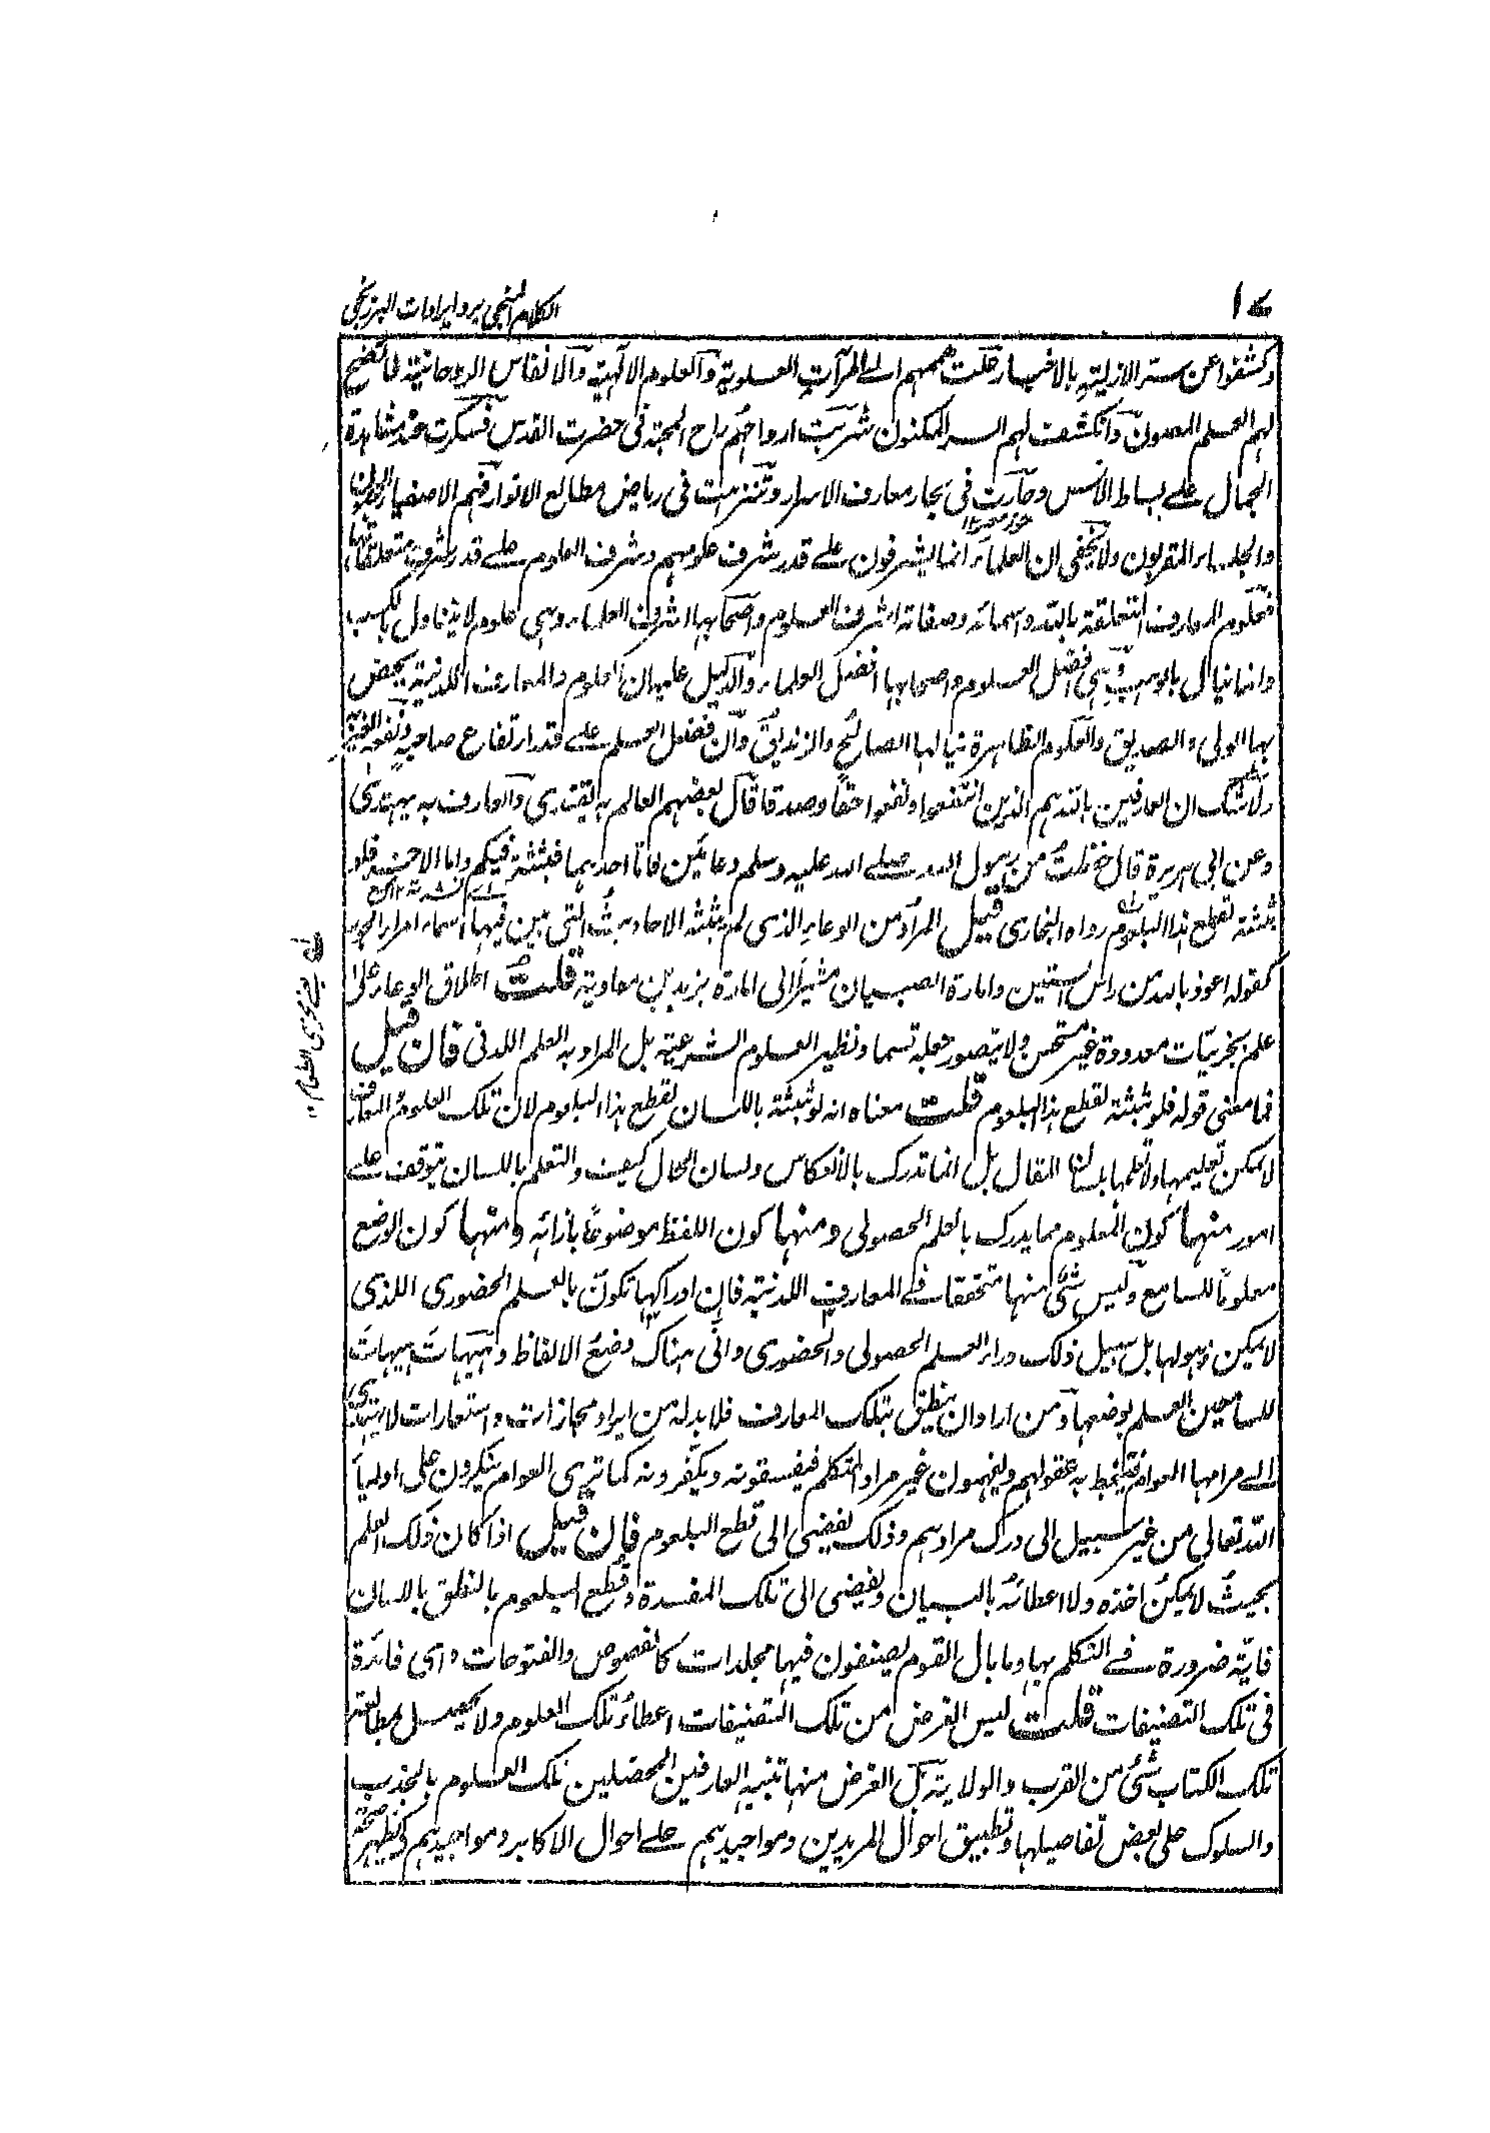 الكلام المنجي برد ايرادات البرزنجي
وكشفوا عن ستر الازلية بالاخبار رحلت هممهم الى المرآت العلوية والعلوم الالٓهية والانفاس الروحانية لما تضح
لهم العلم المصون وانكشفت لهم السر المكنون شربت ارواحهم راح المحبة فى حضرت القدس فسكرت عند مشاهدة
الجمال على بساط الانس وحارت فى بحار معارف الاسرار وتنزهت فى رياض مطالع الانوار فهم الاصفياء
والجلساء المقربون ولا يخفى ان العلماء انما يشرفون على قدر شرف علومهم وشرف العلوم على قدر شرف متعلقاتها
فعلوم المعارف المتعلقة بالله واسمائه وصفاته اشرف العلوم واصحابها اشرف العلماء وهى علوم لا يتناول بالكسب
وانما نيال بالوهب وهى افضل العلوم واصحابها افضل العلماء والدليل عليه ان العلوم والمعارف اللدنية يختص
بها الولى والصديق والعلوم الظاهرة نيالها الصالح والزنديق وان فضل العلم على قدر ارتفاع صاحبه ونفعه لغيره
ولا شك ان العارفين بالله هم الذين انتفعوا ونفعوا حقا وصدقا قال بعضهم العالم به يقتدى والعارف به يهتدى
وعن ابى هريرة قال حفظت من رسول الله صلى الله عليه وسلم وعائين فاما احدهما فبثثته فيكم واما الاخر فلو
بثثته لقطع هذا البلعوم رواه البخارى قيل المراد من الوعاء الذى لم يبثثه الاحاديث التى تبين فيها اسماء امراء الجور
كقوله اعوذ بالله من راس الستين وامارة الصبيان مشيرا الى امارة يزيد بن معاوية قلت اطلاق الوعاء على
علم بجزئيات معدودة غير مستحسن ولا يتصور جعله قسما ونظير العلوم الشرعية بل المراد به العلم اللدنى فان قيل
فما معنى قوله فلو بثثته لقطع هذا البلعوم قلت معناه انه لو بثثته باللسان لقطع هذا البلعوم لان تلك العلوم والمعارف
لا يمكن تعليمها ولا تعلمها بلسان المقال بل انما تدرك بالانعكاس ولسان الحال كيف والتعلم باللسان يتوقف على
امور منها كون المعلوم مما يدرك بالعلم الحصولى ومنها كون اللفظ موضوعا بازائه ومنها كون الوضع
معلوما للسامع وليس شئ منها متحققا فى المعارف اللدنية فان ادراكها تكون بالعلم الحضورى اللذى
لا يمكن ذهولها بل سبيل ذلك وراء العلم الحصولى والحضورى وانى هناك وضع الالفاظ وهيهات هيهات
للسامعين العلم بوضعها ومن اراد ان ينطق بتلك المعارف فلا بد له من ايراد مجازات واستعارات لا يهتدى
الى مرامها العوام فيخبط به عقولهم ويفهمون غير مراد المتكلم فيفسقونه ويكفرونه كما ترى العوام ينكرون على اولياء
الله تعالى من غير سبيل الى درك مرادهم وذلك يفضى الى قطع البلعوم فان قيل اذا كان ذلك العلم
بحيث لا يمكن اخذه ولا اعطائه بالبيان ويفضى الى تلك المفسدة وقطع البلعوم بالنطق باللسان
فاية ضرورة فى التكلم بها وما بال القوم يصنفون فيها مجلدات كالفصوص والفتوحات واى فائدة
فى تلك التصنيفات قلت ليس الغرض من تلك التصنيفات اعطاء تلك العلوم ولا يحصل بمطالعة
تلك الكتاب شئ من القرب والولاية بل الغرض منها تنبيه العارفين المحصلين تلك العلوم بالجذب
والسلوك على بعض تفاصيلها وتطبيق احوال المريدين ومواجيدهم على احوال الاكابر ومواجيدهم ليظهر صحة